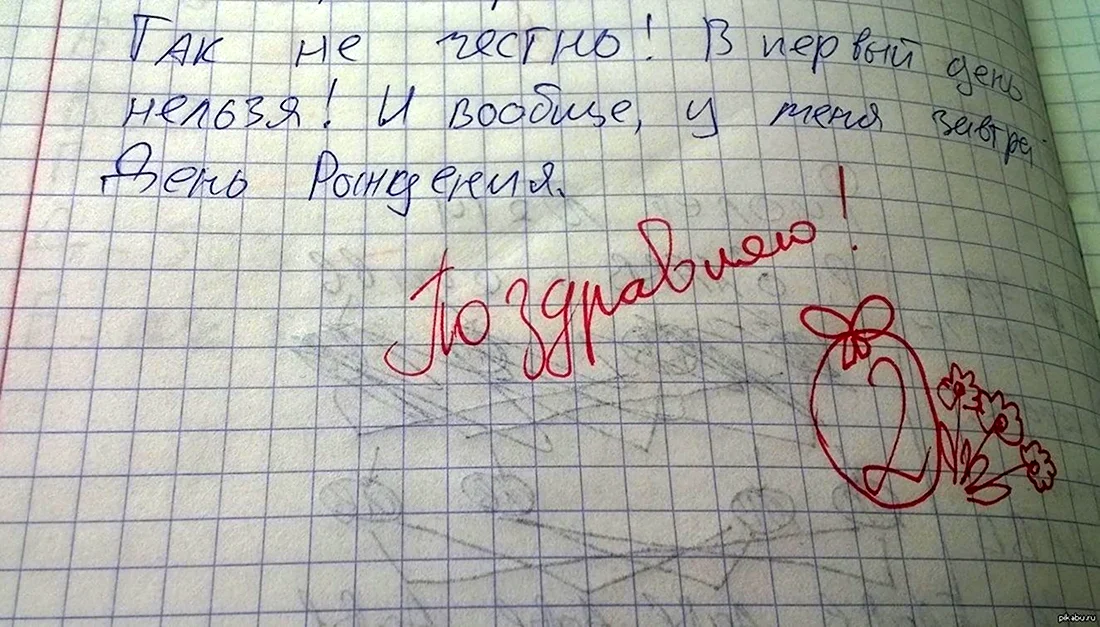 Так не честно! В первый день
нельзя! И вообще, у меня завтра
День Рождения.
Поздравляю!
2
pikabu.ru